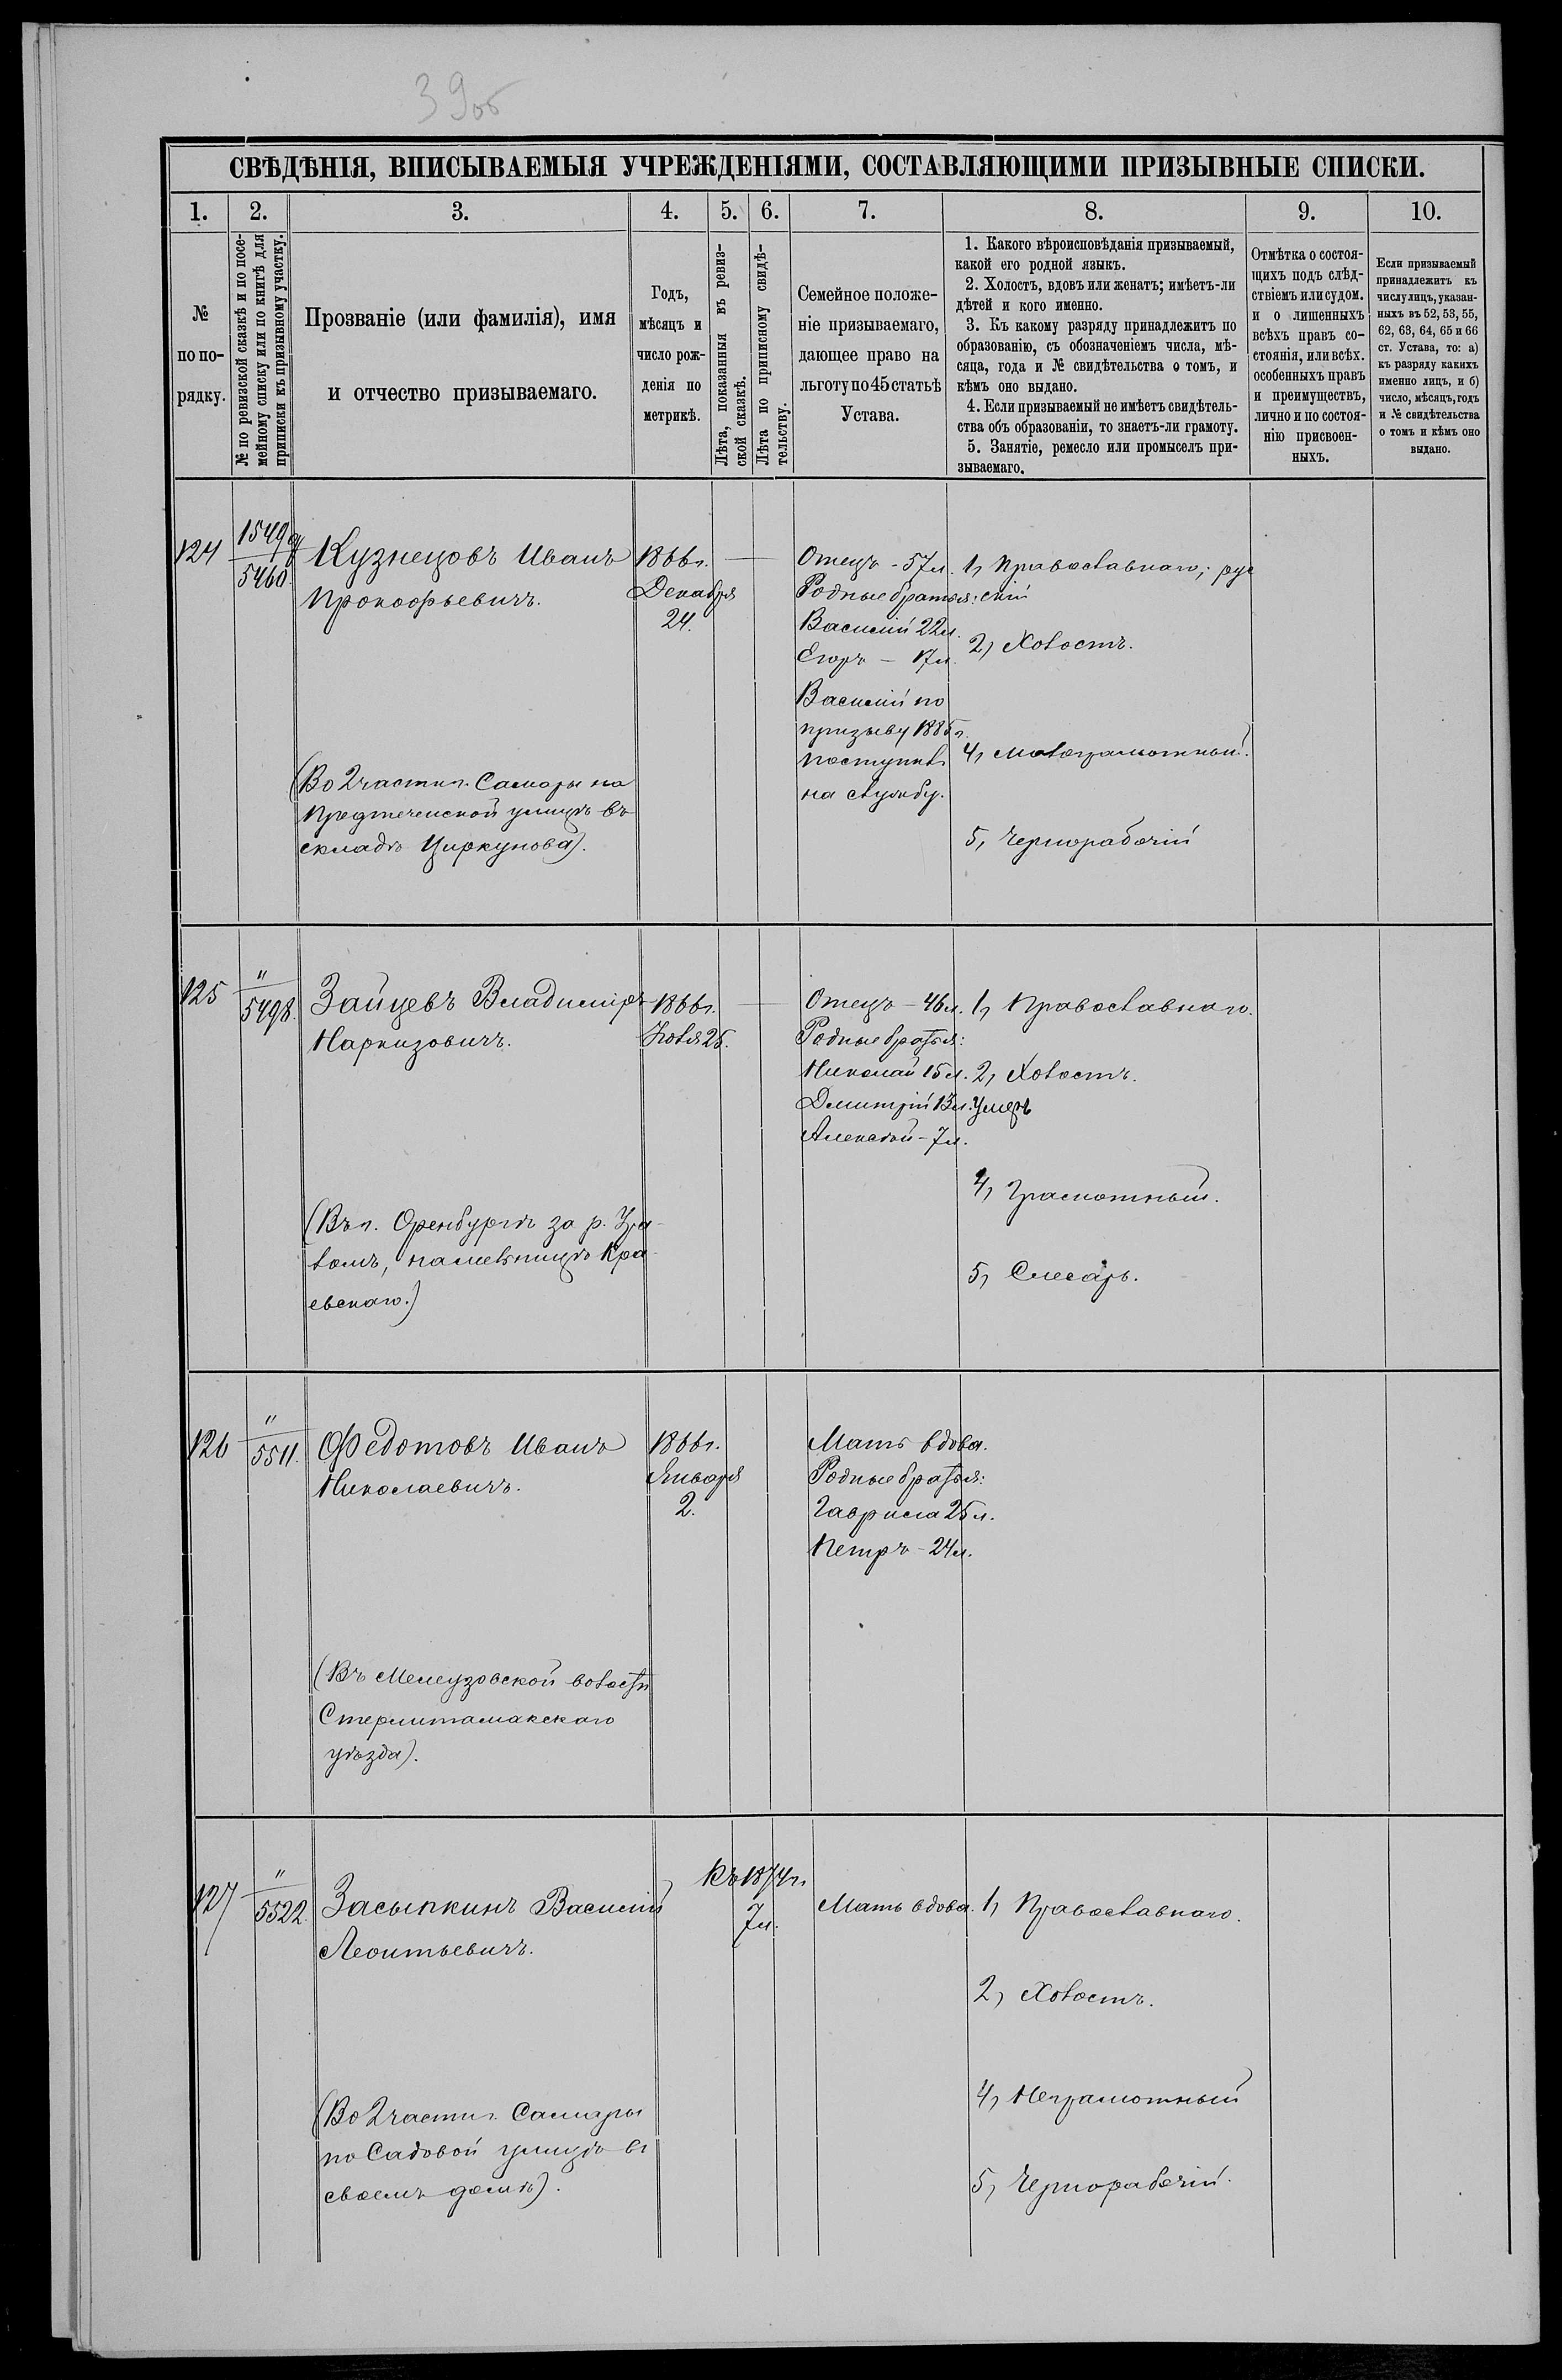 39об
СВѢДѢНІЯ, ВПИСЫВАЕМЫЯ УЧРЕЖДЕНІЯМИ, СОСТАВЛЯЮЩИМИ ПРИЗЫВНЫЕ СПИСКИ.
1. 2. 3. 4. 5. 6. 7. 8. 9. 10.
№
по по-
рядку.
№ по ревизской сказкѣ и по посе-
мейному списку или по книгѣ для
приписки къ призывному участку.
Прозваніе (или фамилія), имя
и отчество призываемаго.
Годъ,
мѣсяцъ и
число рож-
денія по
метрикѣ.
Лѣта, показанныя въ ревиз-
ской сказкѣ.
Лѣта по приписному свидѣ-
тельству.
Семейное положе-
ніе призываемаго,
дающее право на
льготу по 45 статьѣ
Устава.
1. Какого вѣроисповѣданія призываемый,
какой его родной языкъ.
2. Холостъ, вдовъ или женатъ; имѣетъ-ли
дѣтей и кого именно.
3. Къ какому разряду принадлежитъ по
образованію, съ обозначеніемъ числа, мѣ-
сяца, года и № свидѣтельства о томъ, и
кѣмъ оно выдано.
4. Если призываемый не имѣетъ свидѣтель-
ства объ образованіи, то знаетъ-ли грамоту.
5. Занятіе, ремесло или промыселъ при-
зываемаго.
Отмѣтка о состоя-
щихъ подъ слѣд-
ствіемъ или судом.
и о лишенныхъ
всѣхъ правъ со-
стоянія, или всѣх.
особенныхъ правъ
и преимуществъ,
лично и по состоя-
нію присвоен-
ныхъ.
Если призываемый
принадлежитъ къ
числу лицъ, указан-
ныхъ въ 52, 53, 55,
62, 63, 64, 65 и 66
ст. Устава, то: а)
къ разряду какихъ
именно лицъ, и б)
число, мѣсяцъ, годъ
и № свидѣтельства
о томъ и кѣмъ оно
выдано.
124
1549
5460.
Кузнецовъ Иванъ
Прокофьевичъ.
(Во 2 части г. Самары на
Предтеченской улицѣ въ
складѣ Циркунова).
1866 г.
Декабря
24.
Отецъ - 57 л.
Родные братья:
Василій 22 л.
Егоръ - 17 л.
Василій по
призыву 1885 г.
поступилъ
на службу.
1, Православнаго; рус
скій
2, Холостъ.
4, малограмотный.
5, Чернорабочій
125
"
5498.
Зайцевъ Владиміръ
Наркизовичъ.
(Въ г. Оренбургѣ за р. Ура-
ломъ, на мельницѣ Кра-
евскаго.)
1866 г.
Іюля 25.
Отецъ - 46 л.
Родные братья:
Николай 15 л.
Дмитрій 13 л. умеръ
Алексѣй - 7 л.
1, Православнаго.
2, Холостъ.
4, Грамотный.
5, Слесарь.
126
"
5511.
Федотовъ Иванъ
Николаевичъ.
(Въ Мелеузовской волости
Стерлитамакскаго
уѣзда).
1866 г.
Января
2.
Мать вдова.
Родные братья:
Гаврила 25 л.
Петръ - 24 л.
127
"
5522.
Засыпкинъ Василій
Леонтьевичъ.
(Во 2 части г. Самары
по Садовой улицѣ въ
своемъ домѣ).
Къ 1874 г.
7 л.
Мать вдова.
1, Православнаго.
2, Холостъ.
4, Неграмотный
5, Чернорабочій.